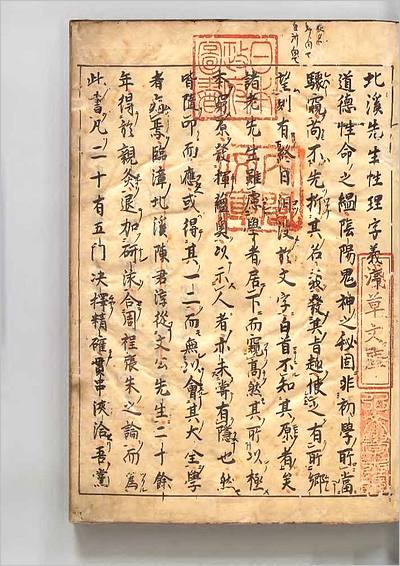 北溪先生性理字義
道德性命之縕陰陽鬼神之秘固非初學所當
驟窺尚不先折其名義發其旨趣使之有所鄉
望則有終日汨沒於文字白首不知其原者矣
諸老先生雖慮學者居下而窺高然其所以極
本窮原發揮蘊奧以示人者亦未嘗有隱也然
皆隨叩而應或得其一二而無以會其大全學
者病焉臨漳北溪陳君淳從文公先生二十餘
年得於親炙退加研泳合周程張朱之論而爲
此書凡二十有五門决擇精確貫串浹洽吾黨
淺草文庫